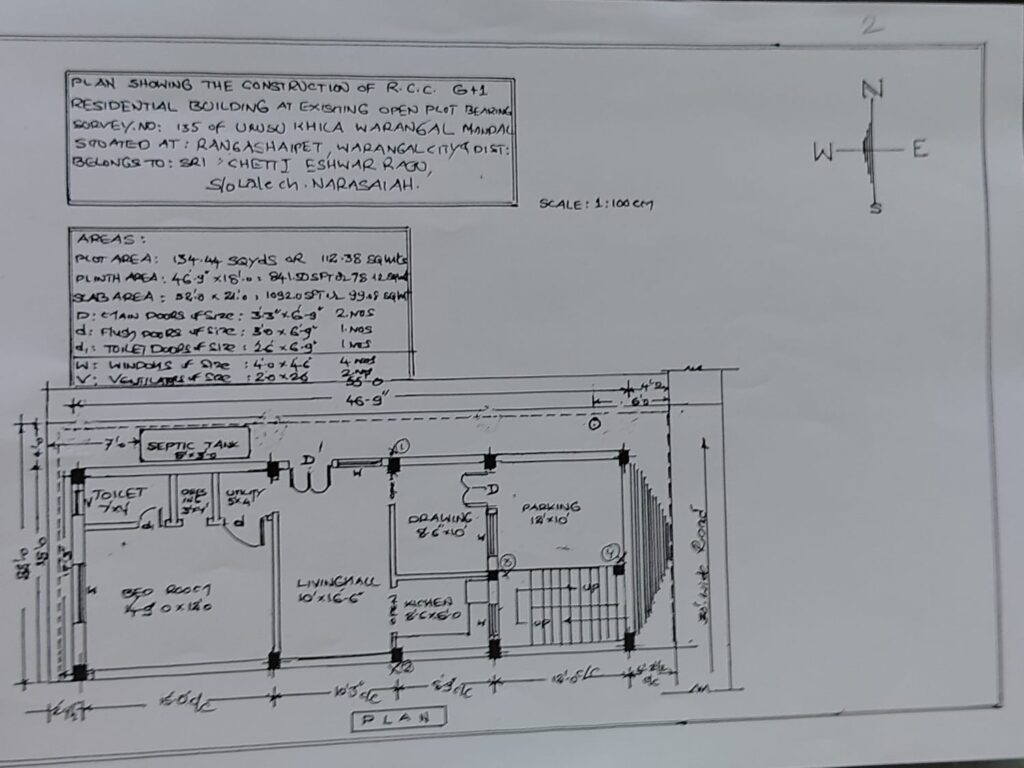 2
PLAN SHOWING THE CONSTRUCTION OF R.C.C. G+1
RESIDENTIAL BUILDING AT EXISTING OPEN PLOT BEARING
SURVEY.NO: 135 OF URUSU KHILA WARANGAL MANDAL
SITUATED AT: RANGASHAIPET, WARANGAL CITY & DIST:
BELONGS TO: SRI: CHETTI ESHWAR RAJU,
S/o Late ch. NARASAIAH.
SCALE: 1:100 CM
N
W E
S
AREAS:
PLOT AREA: 134.44 SQYDS OR 112.38 SQ mts
PLINTH AREA: 46'-9" x 18'-0 : 841.50 SFT OR 78.12 Sqmt
SLAB AREA: 52'-0 x 21'-0 : 1092.0 SFT
D: MAIN DOORS of SIZE: 3'-3" x 6'-9" 2.NOS
d: Flush DOORS of SIZE: 3'-0 x 6'-9" 1.NOS
d1: TOILET DOORS of SIZE: 2'6 x 6'-9" 1.NOS
W: WINDOWS of SIZE: 4'-0 x 4'-6 4.nos
V: VENTILATORS of SIZE: 2'-0 x 2'6 2.nos
55'-0
46'-9"
7'-0
SEPTIC TANK
D'
W
1
TOILET
7'x4'
V
UTILITY
5'x4'
d1
d
DRAWING
8'-6" x 10'
D
PARKING
12'x10'
W
W
BED ROOM
LIVING HALL
10' x 16'-6"
KICHEN
W
3
4
UP
UP
30' wide Road
2
15'-0" C/C
10'-3" C/C
12'-0" C/C
PLAN